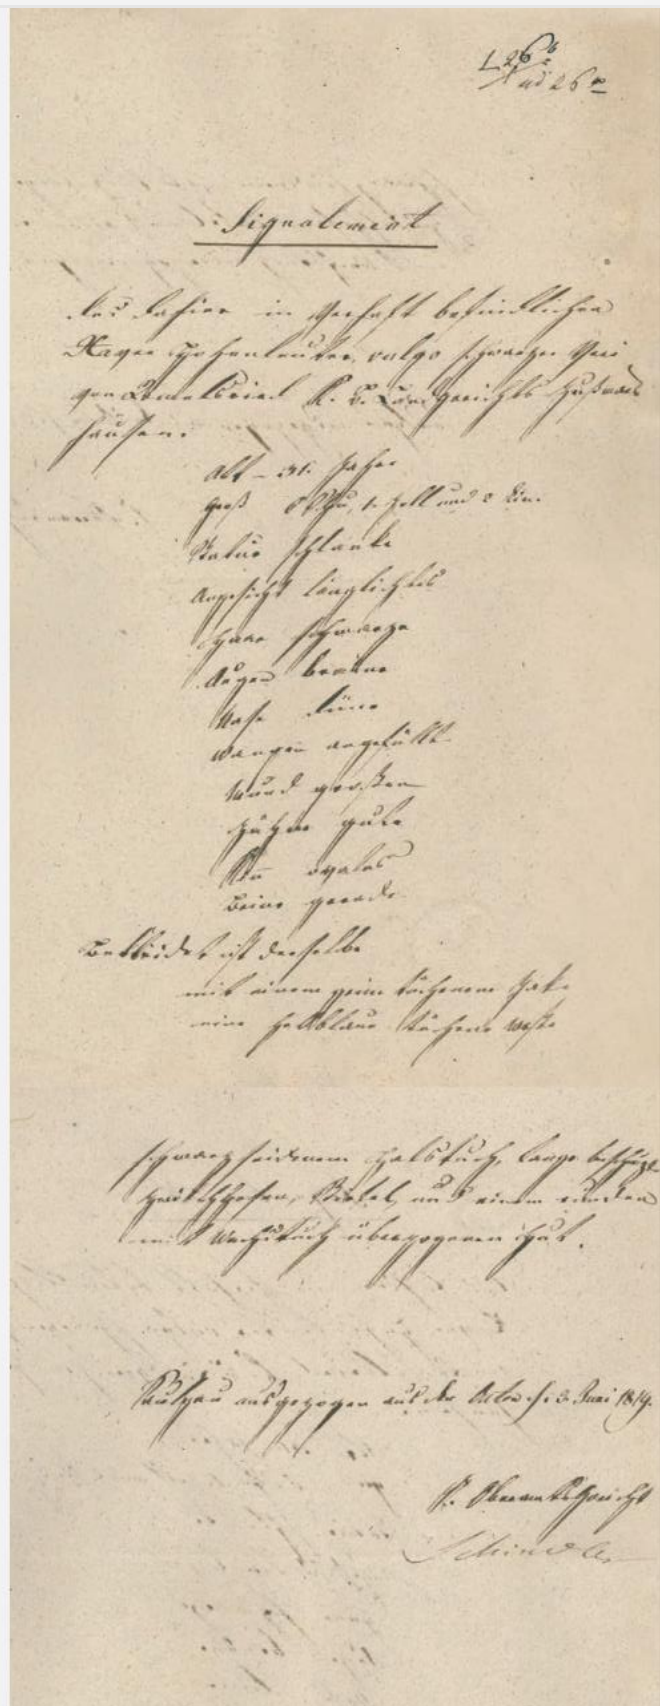 ad 26
Signalement
des dahier in Verhaft befindlichen
Xaver Hohenleuter, vulgo schwarzer Veri
von Rommelsried K. B. Landgerichts Zusmars
hausen.
Alt – Jahre
Groß 5 Schu, 1. Zoll und 2 Lin.
Statur schlanke
Angesicht länglichtes
Haar schwarze
Augen braune
Nase dünne
Wangen angefüllt
Mund großen
Zähne gute
Kinn ovales
Beine gerade
Bekleidet ist derselbe
mit einem grün tüchenem Jake,
eine hellblaue tüchene Weste
schwarz seidenem Halstuch, lange
Stiefel, und einem runden
mit Wachstuch überzogenen Hut.
Saulgau ausgezogen aus den Akten d. 3. Juni 1819.
K. Oberamtsgericht